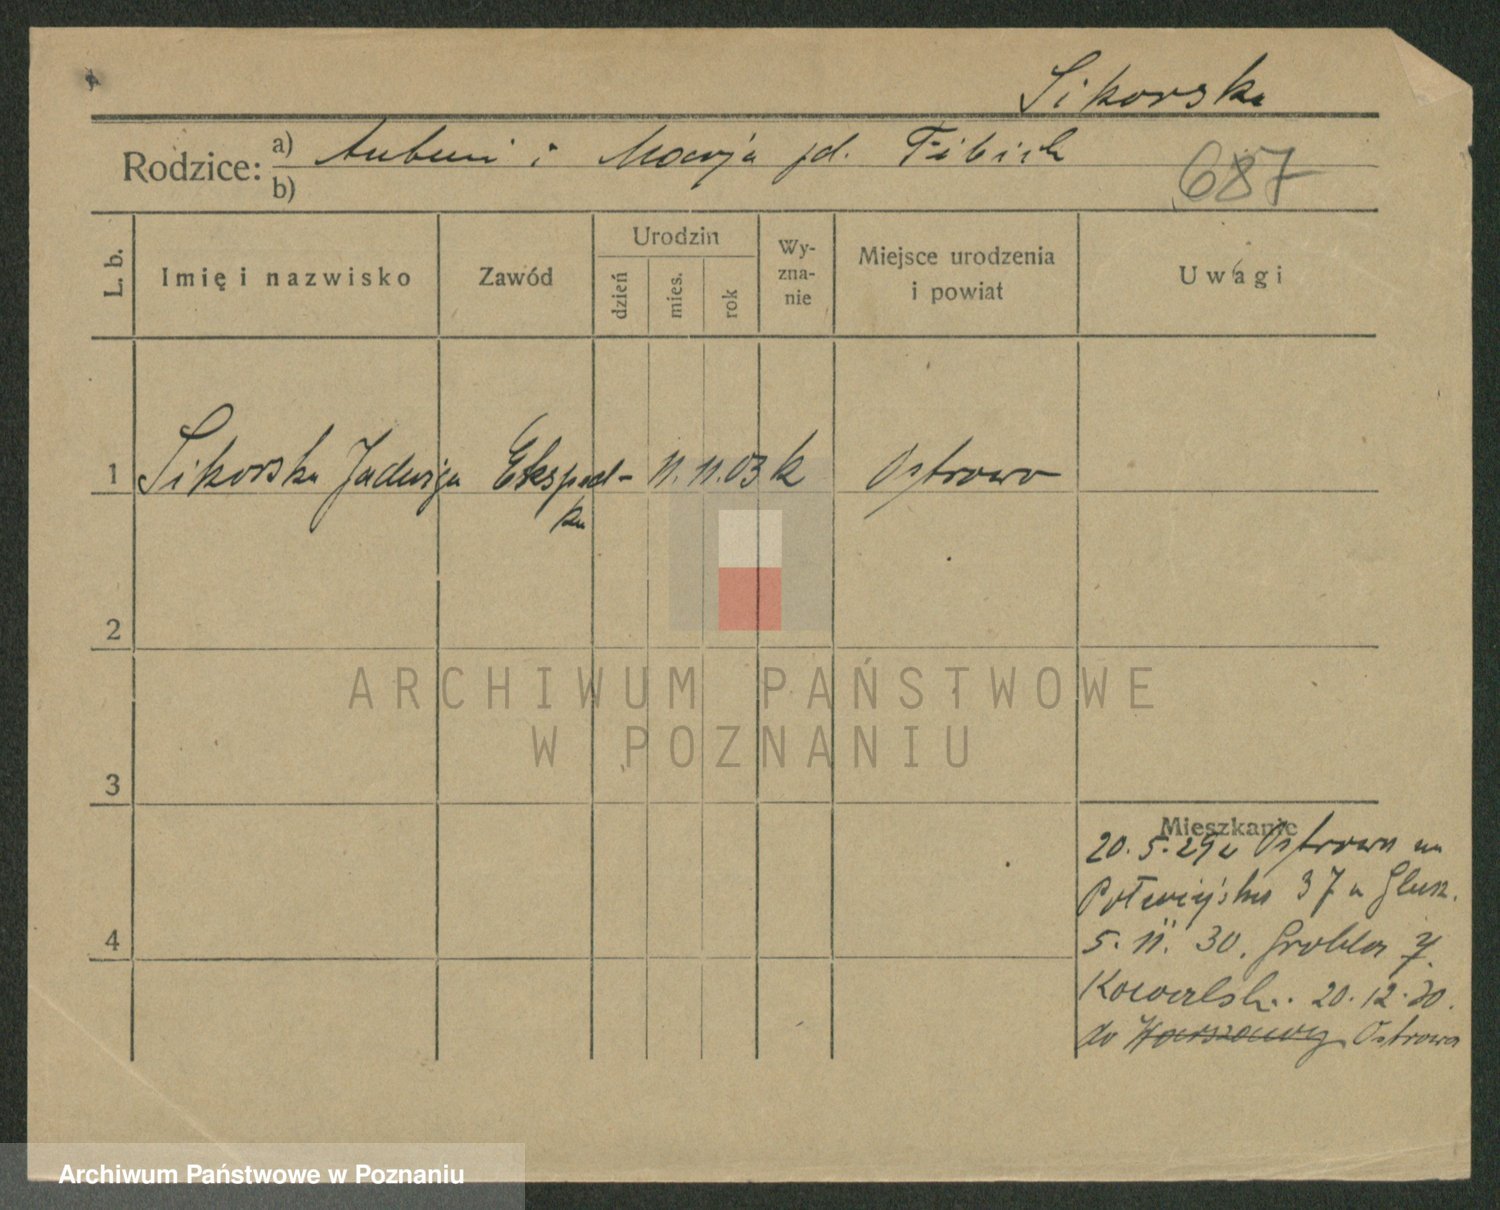 Sikorska
Rodzice: a) Antoni i Marja zd. Fibich
b)
687
L. b. Imię i nazwisko Zawód Urodzin dzień mies. rok Wy-zna-nie Miejsce urodzenia i powiat Uwagi
1 Sikorska Jadwiga Eksped- 11. 11. 03 k Ostrowo
ka
2
3
4
Mieszkanie
20. 5. 29 z Ostrowa na
Półwiejska 37 u Glusz.
5. 11. 30. Grobla 7.
Kowalsk.. 20. 12. 30.
do Warszawy Ostrowa
ARCHIWUM PAŃSTWOWE
W POZNANIU
Archiwum Państwowe w Poznaniu